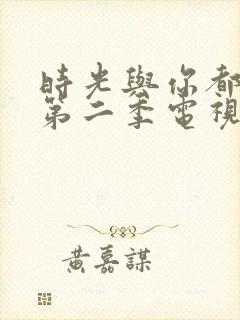 時光與你都
第二季電視
黃嘉謀